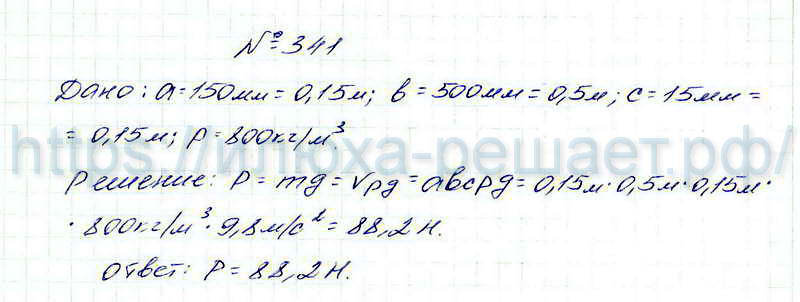 № 341
Дано: a = 150мм = 0,15м; b = 500мм = 0,5м; c = 15мм =
= 0,15м; ρ = 800кг/м³.
https://илюха-решает.рф/
Решение: P = mg = Vρg = abcρg = 0,15м · 0,5м · 0,15м ·
· 800кг/м³ · 9,8м/с² = 88,2Н.
Ответ: P = 88,2Н.